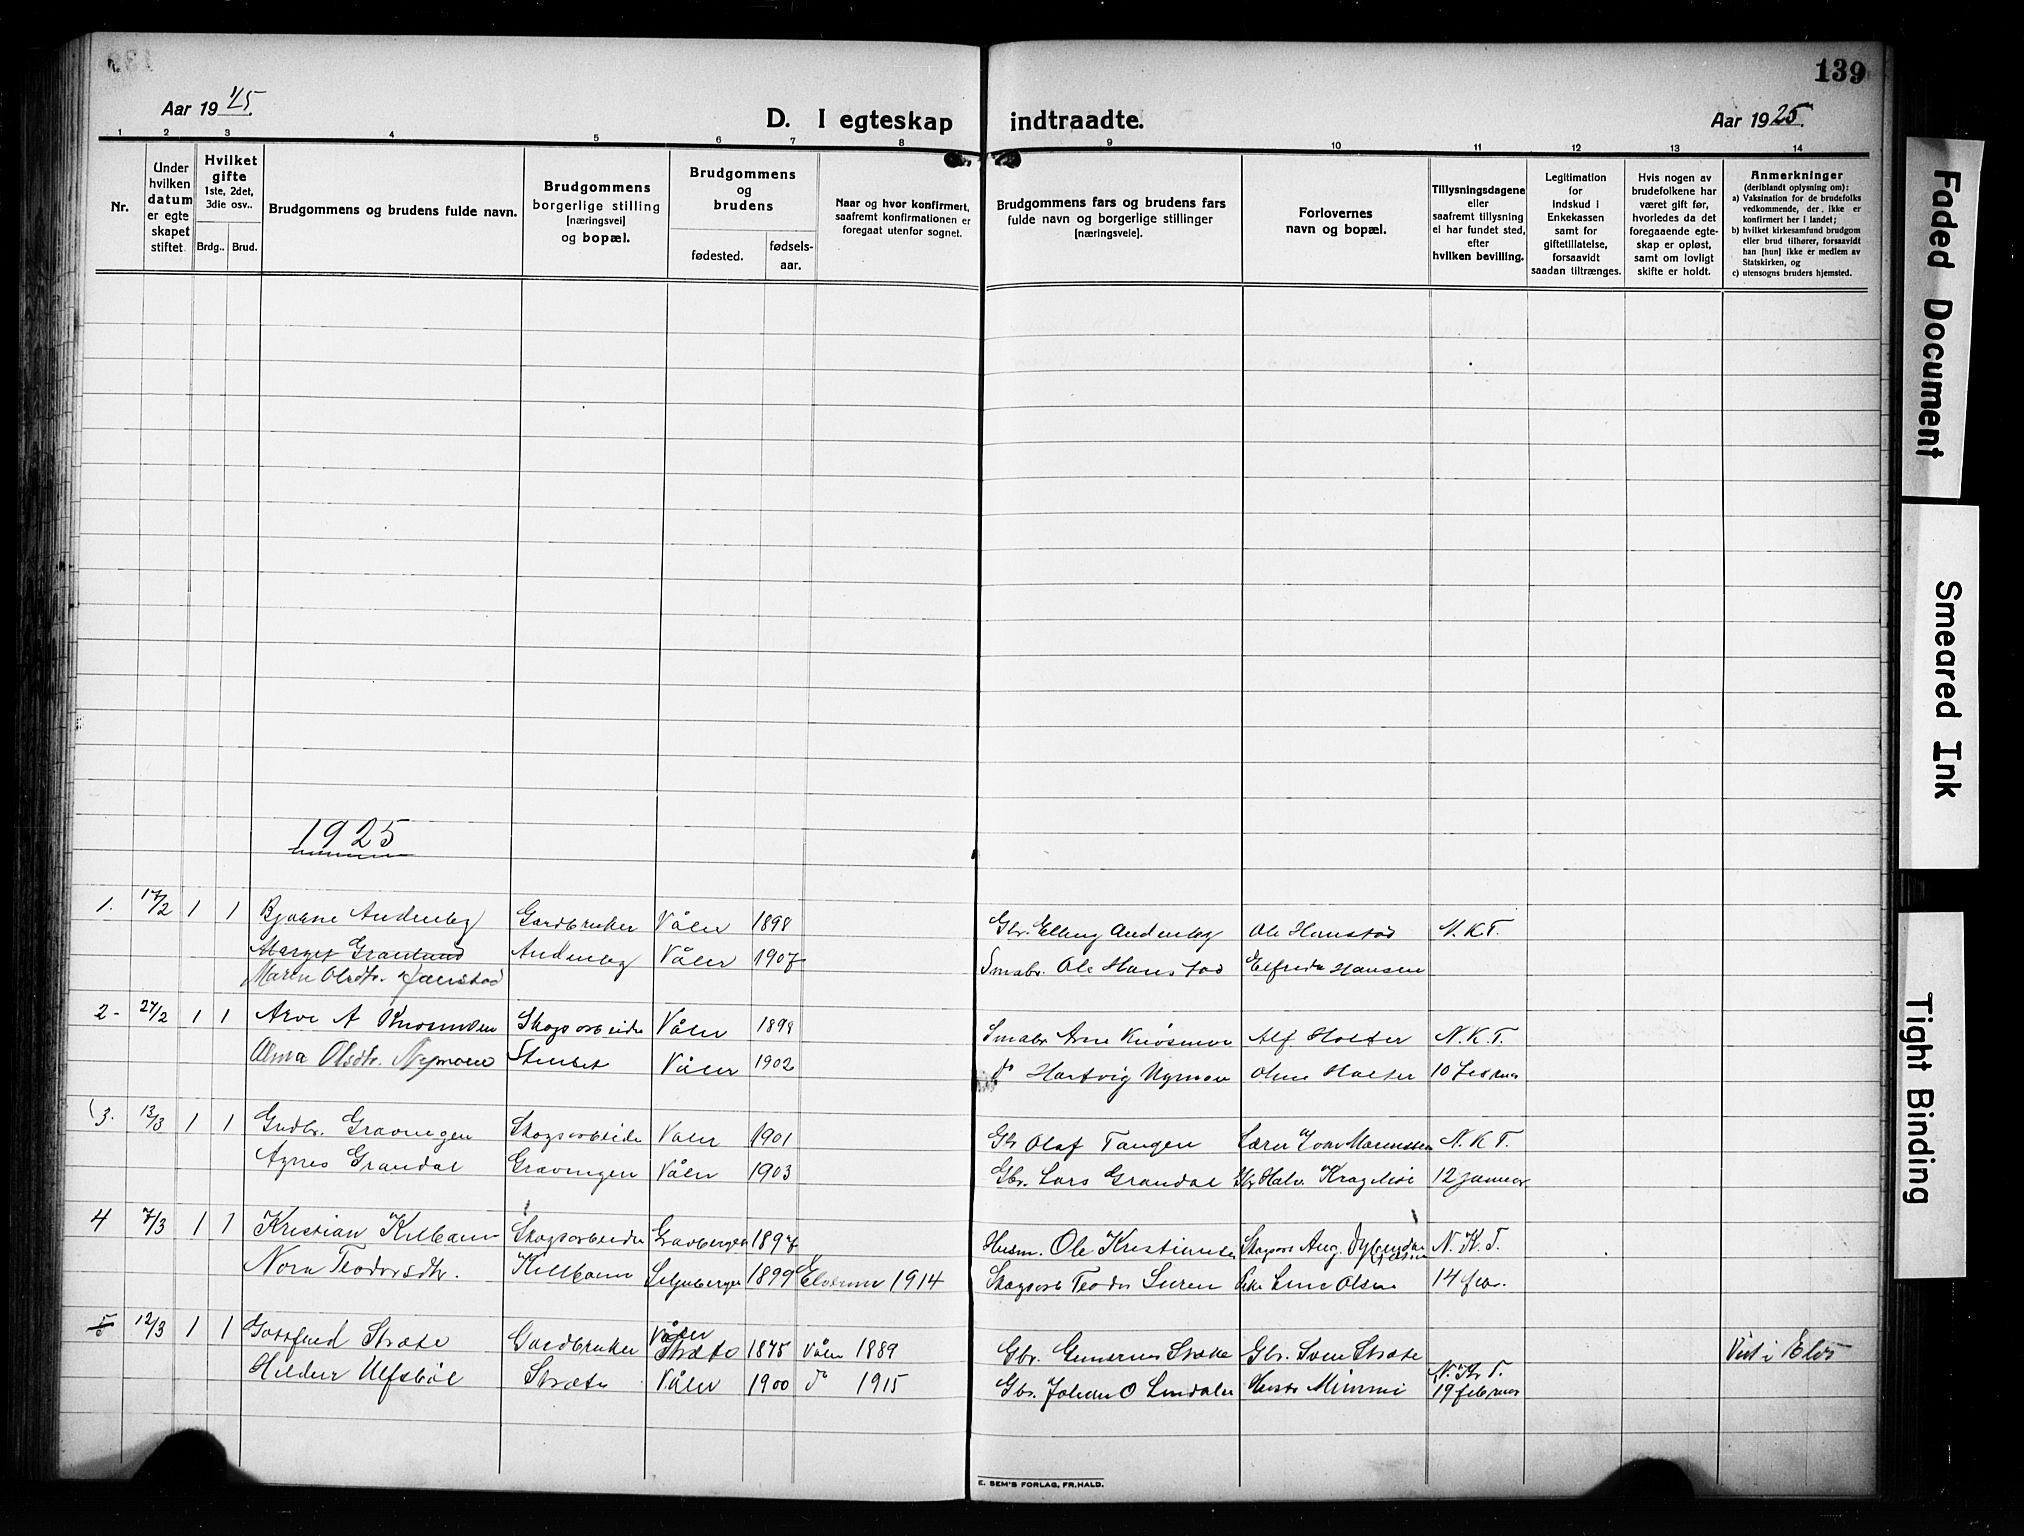 139
Aar 1925.
D. I egteskap indtraadte.
Aar 1925.
1 2 3 4 5 6 7 8 9 10 11 12 13 14
Nr.
Under hvilken datum er egteskapet stiftet.
Hvilket gifte 1ste, 2det, 3die osv..
Brdg.. Brud.
Brudgommens og brudens fulde navn.
Brudgommens borgerlige stilling [næringsvei] og bopæl.
Brudgommens og brudens
fødested. fødsels-aar.
Naar og hvor konfirmert, saafremt konfirmationen er foregaat utenfor sognet.
Brudgommens fars og brudens fars fulde navn og borgerlige stillinger [næringsveie].
Forlovernes navn og bopæl.
Tillysningsdagene eller saafremt tillysning ei har fundet sted, efter hvilken bevilling.
Legitimation for indskud i Enkekassen samt for giftetillatelse, forsaavidt saadan tiltrænges.
Hvis nogen av brudefolkene har været gift før, hvorledes da det foregaaende egteskap er opløst, samt om lovligt skifte er holdt.
Anmerkninger (deriblandt oplysning om): a) Vaksination for de brudefolks vedkommende, der ikke er konfirmert her i landet; b) hvilket kirkesamfund brudgom eller brud tilhører, forsaavidt han [hun] ikke er medlem av Statskirken, og c) utensogns bruders hjemsted.
1925
1. 17/2 1 1 Bjarne Gardbruker Våler 1898 Gbr. Elling Ole Hanstad N.K.T.
Våler 1907 Smabr. Ole Hanstad Elfrida Hansen
Maren Olsdtr. Hanstad
2- 27/2 1 1 Arve A Skogsarbeider Våler 1898 Smabr. Arne Alf. Holter N.K.T.
Alma Olsdtr. Nymoen Våler 1902 do Hartvig Nymoen Holter 10 februar
3. 13/3 1 1 Gudbr. Gravningen Skogsarbeide Våler 1901 Gbr Olaf Tangen Lærer N.K.T.
Agnes Grandal Gravningen Våler 1903 Gbr. Lars Grandal 12 januar
4 7/3 1 1 Kristian Skogsarbeider Gravberget 1897 Husm. Ole Kristiansen Skogsarb Aug. N.K.T.
Nora Teodorsdtr. 1899 Elverum 1914 Skogsarb Teodor Olsen 14 febr.
5 12/3 1 1 Stræte Gardbruker Våler Stræte 1875 Våler 1889 Gbr. Stræte Gbr. Sven Stræte Viet i
Hildur Ulfsbøl Stræte Våler 1900 do 1915 Gbr. Johan O N.K.T. 19 februar
E. SEM'S FORLAG, FR.HALD.
Faded Document
Smeared Ink
Tight Binding